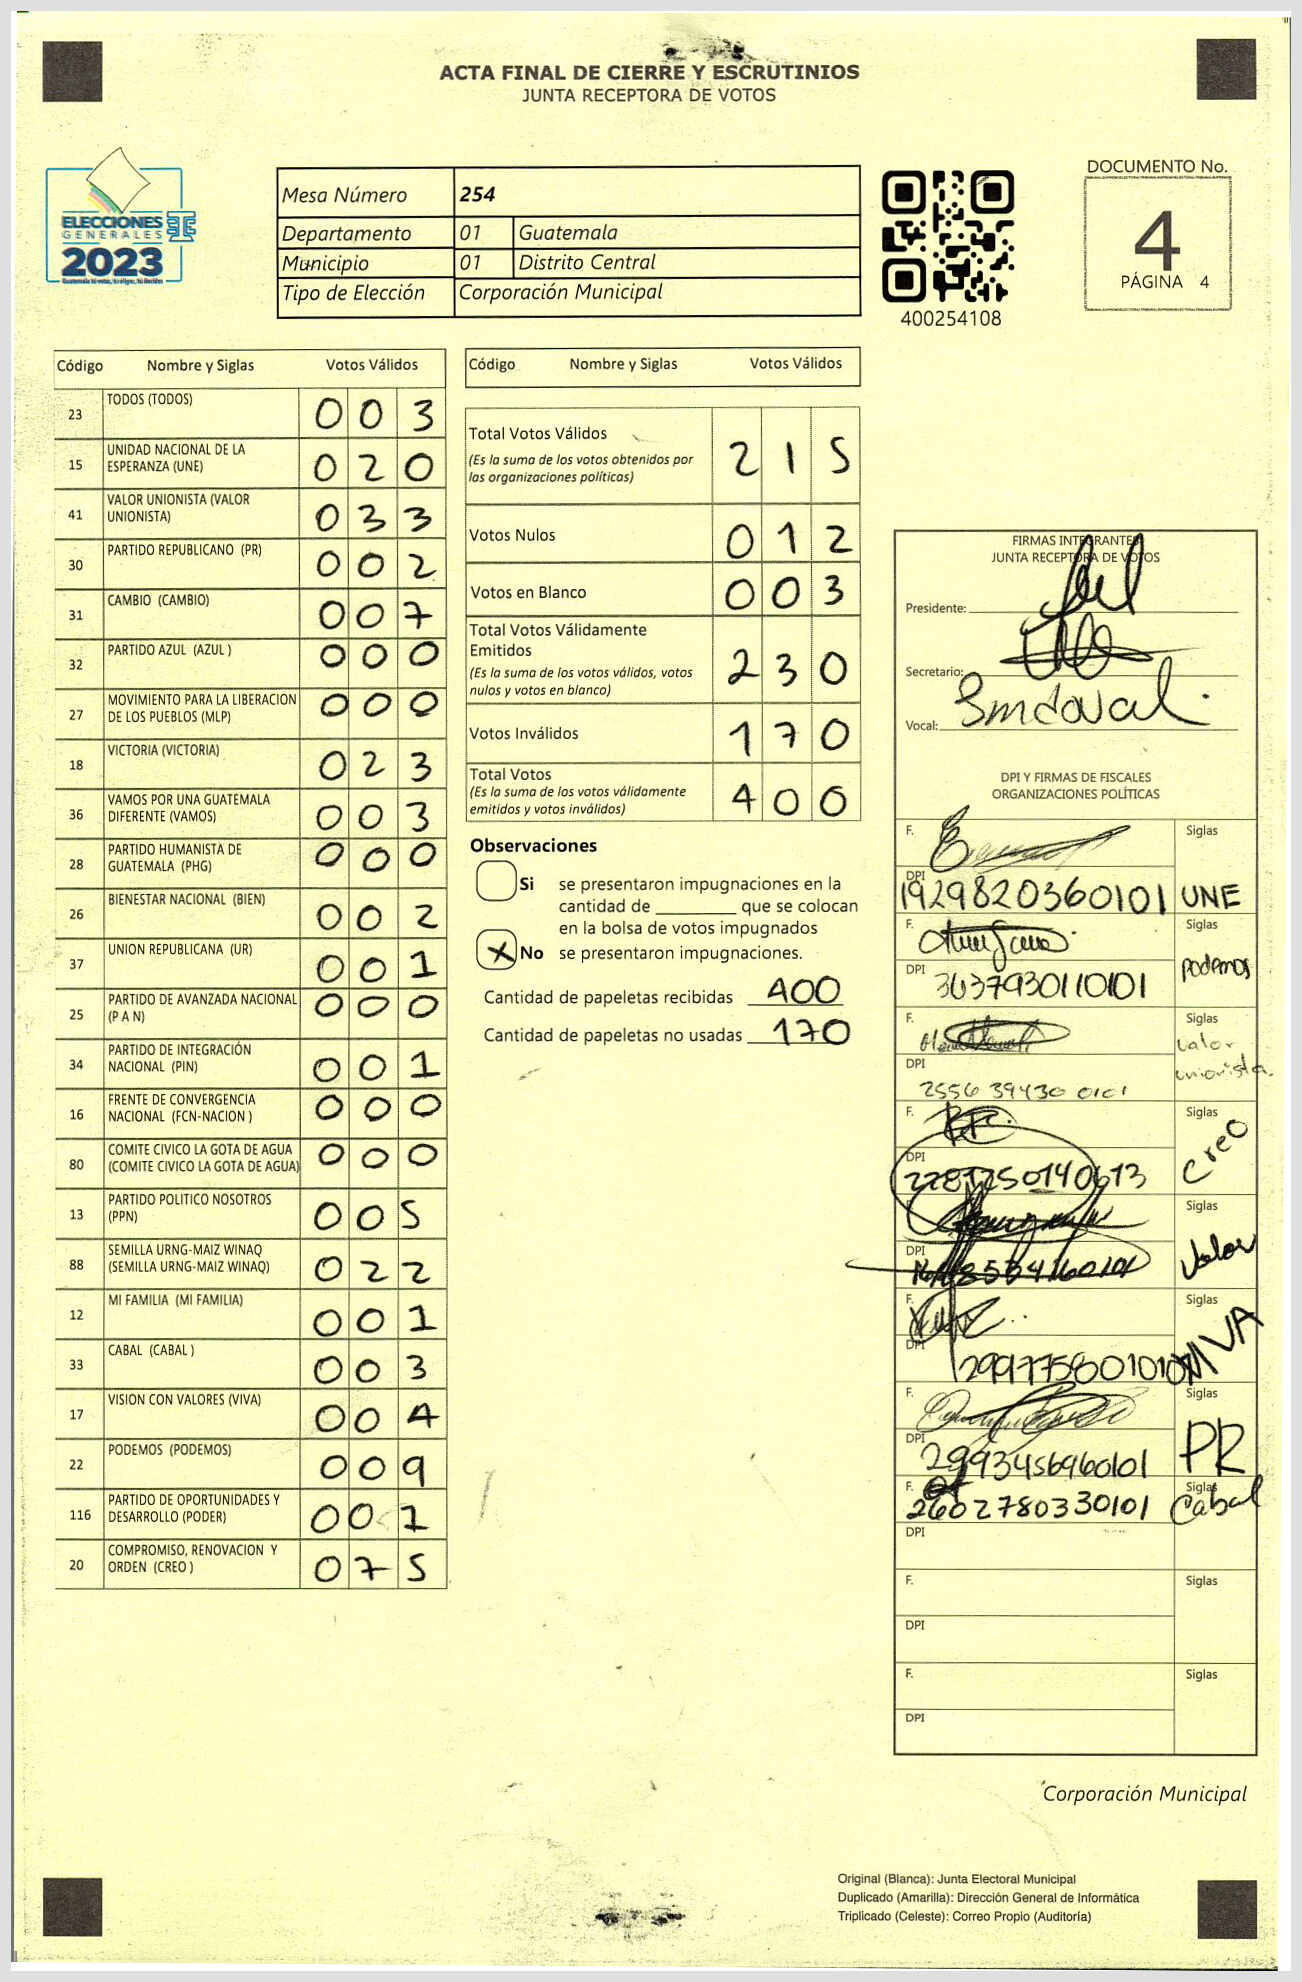 ACTA FINAL DE CIERRE Y ESCRUTINIOS
JUNTA RECEPTORA DE VOTOS
ELECCIONES
GENERALES
2023
Mesa Número 254
Departamento 01 Guatemala
Municipio 01 Distrito Central
Tipo de Elección Corporación Municipal
400254108
DOCUMENTO No.
4
PÁGINA 4
Código Nombre y Siglas Votos Válidos
23 TODOS (TODOS) 003
15 UNIDAD NACIONAL DE LA ESPERANZA (UNE) 020
41 VALOR UNIONISTA (VALOR UNIONISTA) 033
30 PARTIDO REPUBLICANO (PR) 002
31 CAMBIO (CAMBIO) 007
32 PARTIDO AZUL (AZUL ) 000
27 MOVIMIENTO PARA LA LIBERACION DE LOS PUEBLOS (MLP) 000
18 VICTORIA (VICTORIA) 023
36 VAMOS POR UNA GUATEMALA DIFERENTE (VAMOS) 003
28 PARTIDO HUMANISTA DE GUATEMALA (PHG) 000
26 BIENESTAR NACIONAL (BIEN) 002
37 UNION REPUBLICANA (UR) 001
25 PARTIDO DE AVANZADA NACIONAL (P A N) 000
34 PARTIDO DE INTEGRACIÓN NACIONAL (PIN) 001
16 FRENTE DE CONVERGENCIA NACIONAL (FCN-NACION ) 000
80 COMITE CIVICO LA GOTA DE AGUA (COMITE CIVICO LA GOTA DE AGUA) 000
13 PARTIDO POLITICO NOSOTROS (PPN) 005
88 SEMILLA URNG-MAIZ WINAQ (SEMILLA URNG-MAIZ WINAQ) 022
12 MI FAMILIA (MI FAMILIA) 001
33 CABAL (CABAL ) 003
17 VISION CON VALORES (VIVA) 004
22 PODEMOS (PODEMOS) 009
116 PARTIDO DE OPORTUNIDADES Y DESARROLLO (PODER) 001
20 COMPROMISO, RENOVACION Y ORDEN (CREO ) 075
Código Nombre y Siglas Votos Válidos
Total Votos Válidos 215
(Es la suma de los votos obtenidos por
las organizaciones políticas)
Votos Nulos 012
Votos en Blanco 003
Total Votos Válidamente
Emitidos 230
(Es la suma de los votos válidos, votos
nulos y votos en blanco)
Votos Inválidos 170
Total Votos 400
(Es la suma de los votos válidamente
emitidos y votos inválidos)
Observaciones
Si se presentaron impugnaciones en la
cantidad de ________ que se colocan
en la bolsa de votos impugnados
X No se presentaron impugnaciones.
Cantidad de papeletas recibidas 400
Cantidad de papeletas no usadas 170
FIRMAS INTEGRANTES
JUNTA RECEPTORA DE VOTOS
Presidente:
Secretario:
Vocal: Sandoval
DPI Y FIRMAS DE FISCALES
ORGANIZACIONES POLÍTICAS
F. Siglas
DPI 1929820360101 UNE
F. Siglas
DPI 3637930110101 podemos
F. Siglas
DPI 2556 39430 0101 valor unionista.
F. Siglas
DPI creo
Siglas
DPI Valor
F. Siglas
DPI VIVA
F. Siglas
DPI 2993456960101 PR
F. Siglas
2602780330101 Cabal
DPI
F. Siglas
DPI
F. Siglas
DPI
Corporación Municipal
Original (Blanca): Junta Electoral Municipal
Duplicado (Amarilla): Dirección General de Informática
Triplicado (Celeste): Correo Propio (Auditoría)